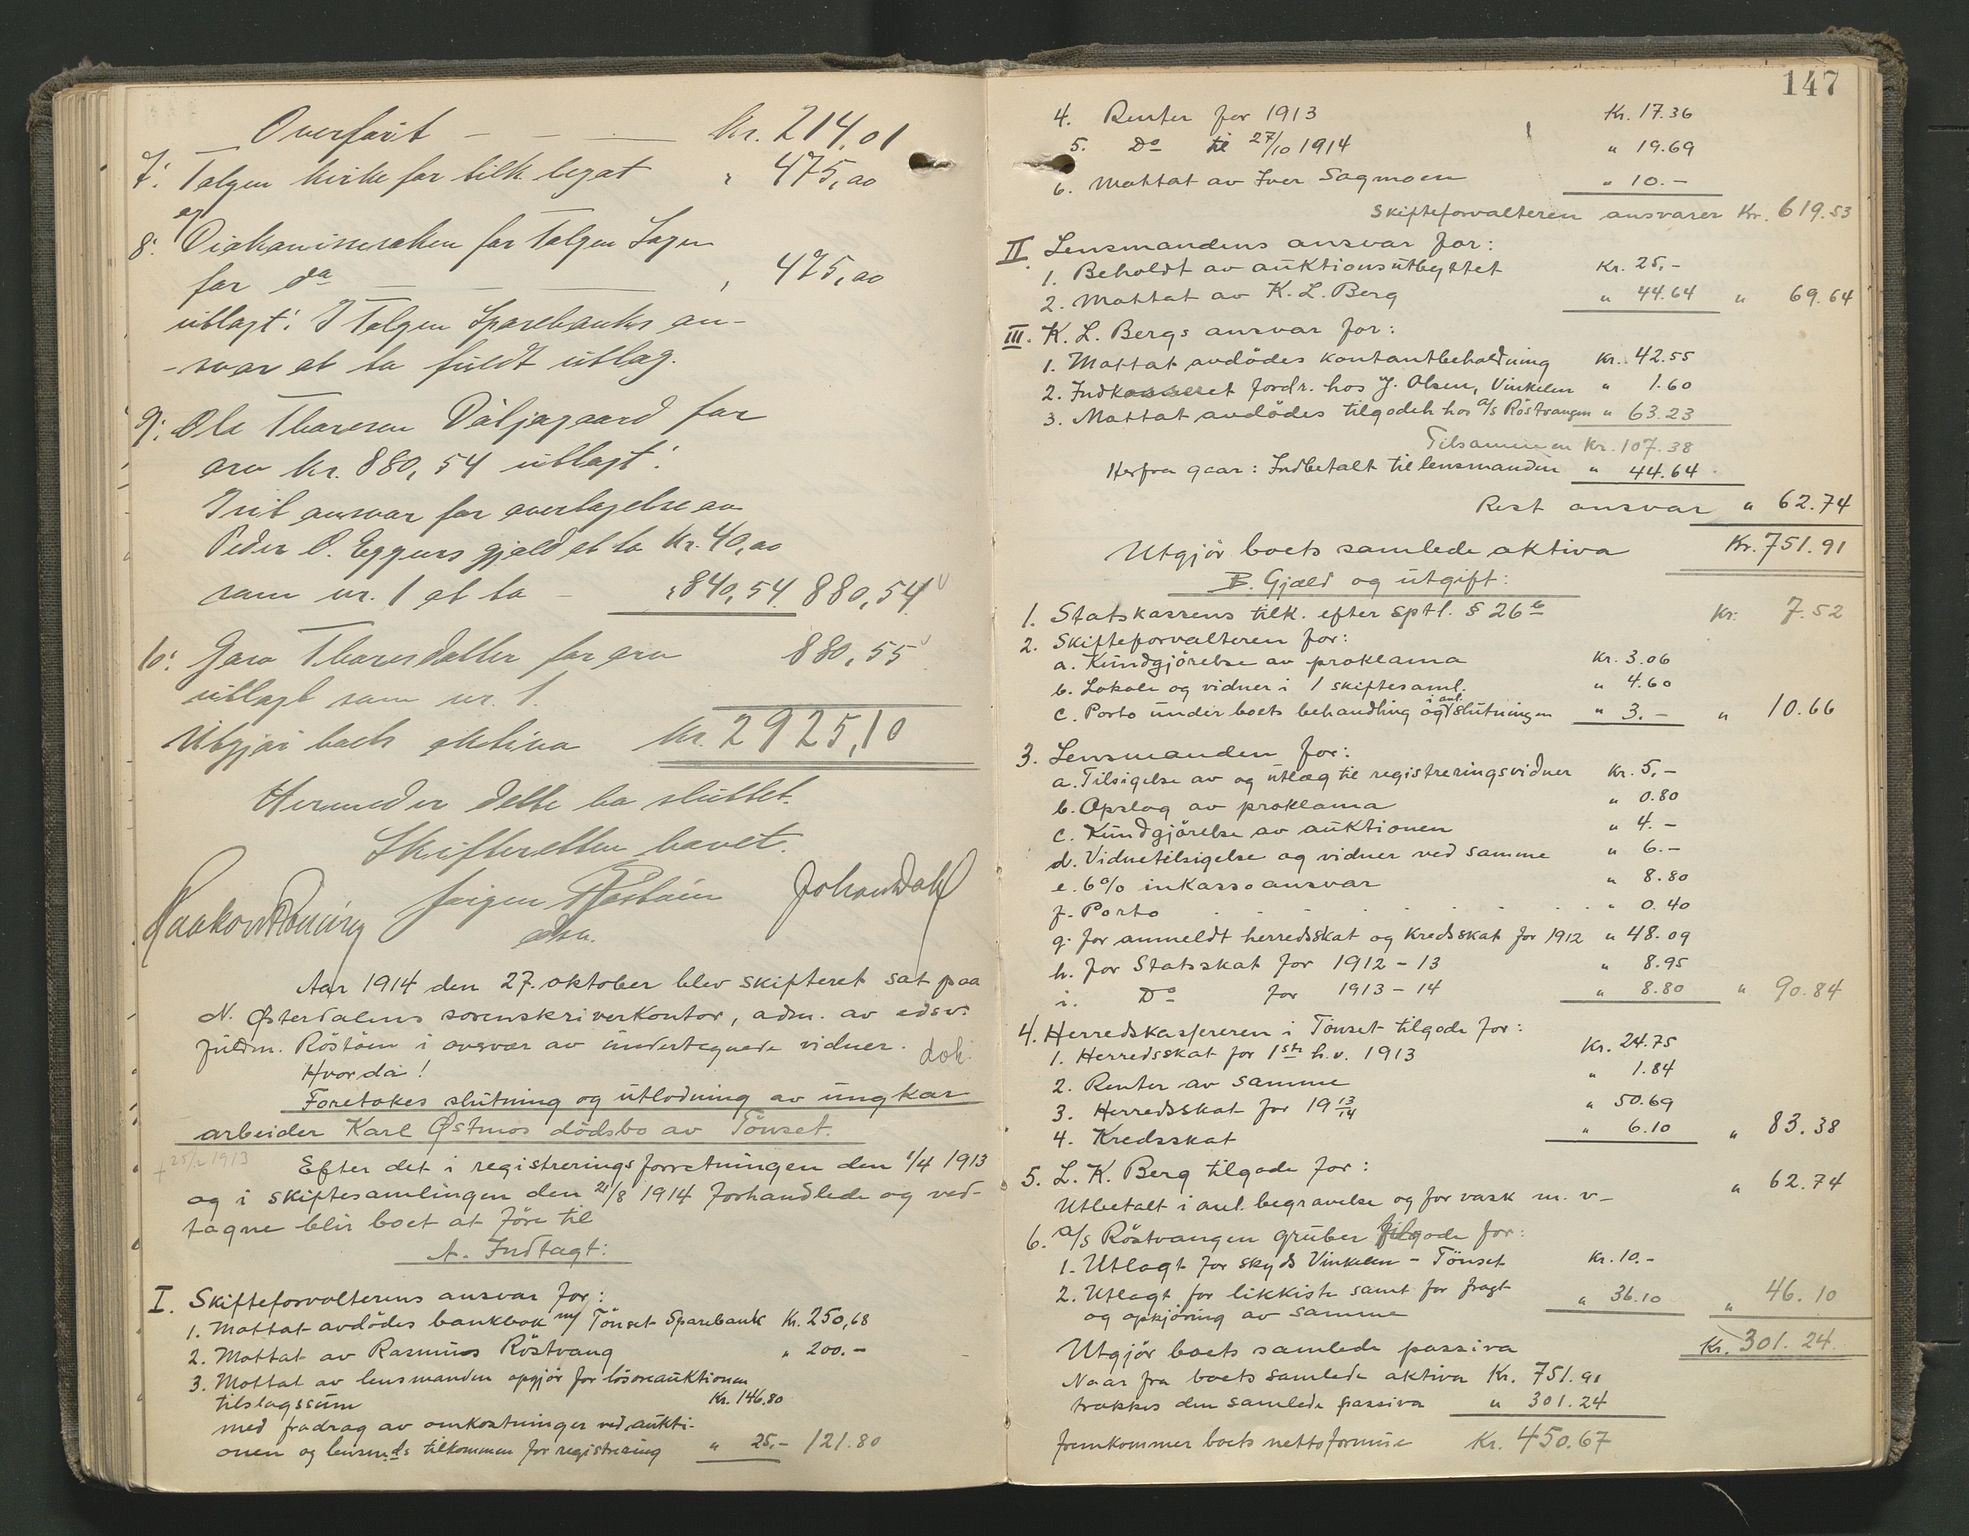 Overført — — — kr. 214,01
7. Tolgen kirke for tilk. legat " 475,00
og
8. Diakonissesaken for Tolgen Sogn
for do — — — " 475,00
utlagt: I Tolgen Sparebanks an-
svar at ta fuldt utlag.
9. Ole Thoresen Däljagaard for
arv kr. 880,54 utlagt:
I sit ansvar for overtagelse av
Peder O. Eggens gjæld at ta kr. 40,00
som nr. 1 at ta — " 840,54 880,54
10. Goro Thoresdatter for arv 880,55
utlagt som nr. 1.
Utgjør boets aktiva kr. 2925,10
Hermeder dette bo sluttet.
Skifteretten hævet.
Haakon Rønning Jørgen Røstøen Johan Dahl
edsv.
Aar 1914 den 27. oktober blev skifteret sat paa
N. Østerdalens sorenskriverkontor, adm. av edsv.
fuldm. Röstöen i overvær av undertegnede vidner.
dok.
Hvorda!
Foretokes slutning og utlodning av ungkar
arbeider Karl Østmos dödsbo av Tönset.
+ 25/2 1913
Efter det i registreringsforretningen den 1/4 1913
og i skiftesamlingen den 21/8 1914 forhandlede og ved-
tagne blir boet at före til
A. Indtægt:
I. Skifteforvalterens ansvar for:
1. Mottat avdödes bankbok m/ Tönset Sparebank Kr. 250,68
2. Mottat av Rasmus Röstvang " 200.—
3. Mottat av lensmanden opgjör for lösöreauktionen
tilslagssum Kr. 146.80
med fradrag av omkostninger ved aukti-
onen og lensm.ds tilkommen for registrering " 25.— 121.80
147
4. Renter for 1913 Kr. 17.36
5. Do til 27/10 1914 " 19.69
6. Mottat av Iver Sagmoen " 10.—
Skifteforvalteren ansvarer Kr. 619.53
II. Lensmandens ansvar for:
1. Beholdt av auktionsutbyttet Kr. 25,—
2. Mottat av K. L. Berg " 44.64 " 69.64
III. K. L. Bergs ansvar for:
1. Mottat avdödes kontantbeholdning Kr. 42.55
2. Indkasseret fordr. hos J. Olsen, Vinkelen " 1.60
3. Mottat avdödes tilgodeh. hos a/s Röstvangen " 63.23
Tilsammen Kr. 107.38
Herfra gaar: Indbetalt til lensmanden " 44.64
Rest ansvar " 62.74
Utgjör boets samlede aktiva Kr. 751.91
B. Gjæld og utgift:
1. Statskassens tilk. efter sptl. § 26 b Kr. 7.52
2. Skifteforvalteren for:
a. Kundgjörelse av proklama Kr. 3.06
b. Lokale og vidner i 1 skiftesaml. " 4.60
c. Porto under boets behandling og i anl. slutningen " 3.— " 10.66
3. Lensmanden for:
a. Tilsigelse av og utlæg til registreringsvidner Kr. 5,—
b. Opslag av proklama " 0.80
c. Kundgjörelse av auktionen " 4.—
d. Vidnetilsigelse og vidner ved samme " 6.—
e. 6% inkassoansvar " 8.80
f. Porto . . . . . . . " 0.40
g. for anmeldt herredsskat og Kredsskat for 1912 " 48.09
h. for Statsskat for 1912 – 13 " 8.95
i. Do for 1913 – 14 " 8.80 " 90.84
4. Herredskassereren i Tönset tilgode for:
1. Herredsskat for 1ste h.v. 1913 Kr. 24.75
2. Renter av samme " 1.84
3. Herredsskat for 19 13/14 " 50.69
4. Kredsskat " 6.10 " 83.38
5. L. K. Berg tilgode for:
Utbetalt i anl. begravelse og for vask m. v— " 62.74
6. a/s Röstvangen gruber tilgode for:
1. Utlagt for skyds Vinkelen – Tönset Kr. 10.—
2. Utlagt for likkiste samt for fragt
og opkjöring av samme " 36.10 " 46.10
Utgjör boets samlede passiva Kr. 301.24
Naar fra boets samlede aktiva Kr. 751.91
trækkes den samlede passiva " 301.24
fremkommer boets nettoformue Kr. 450.67